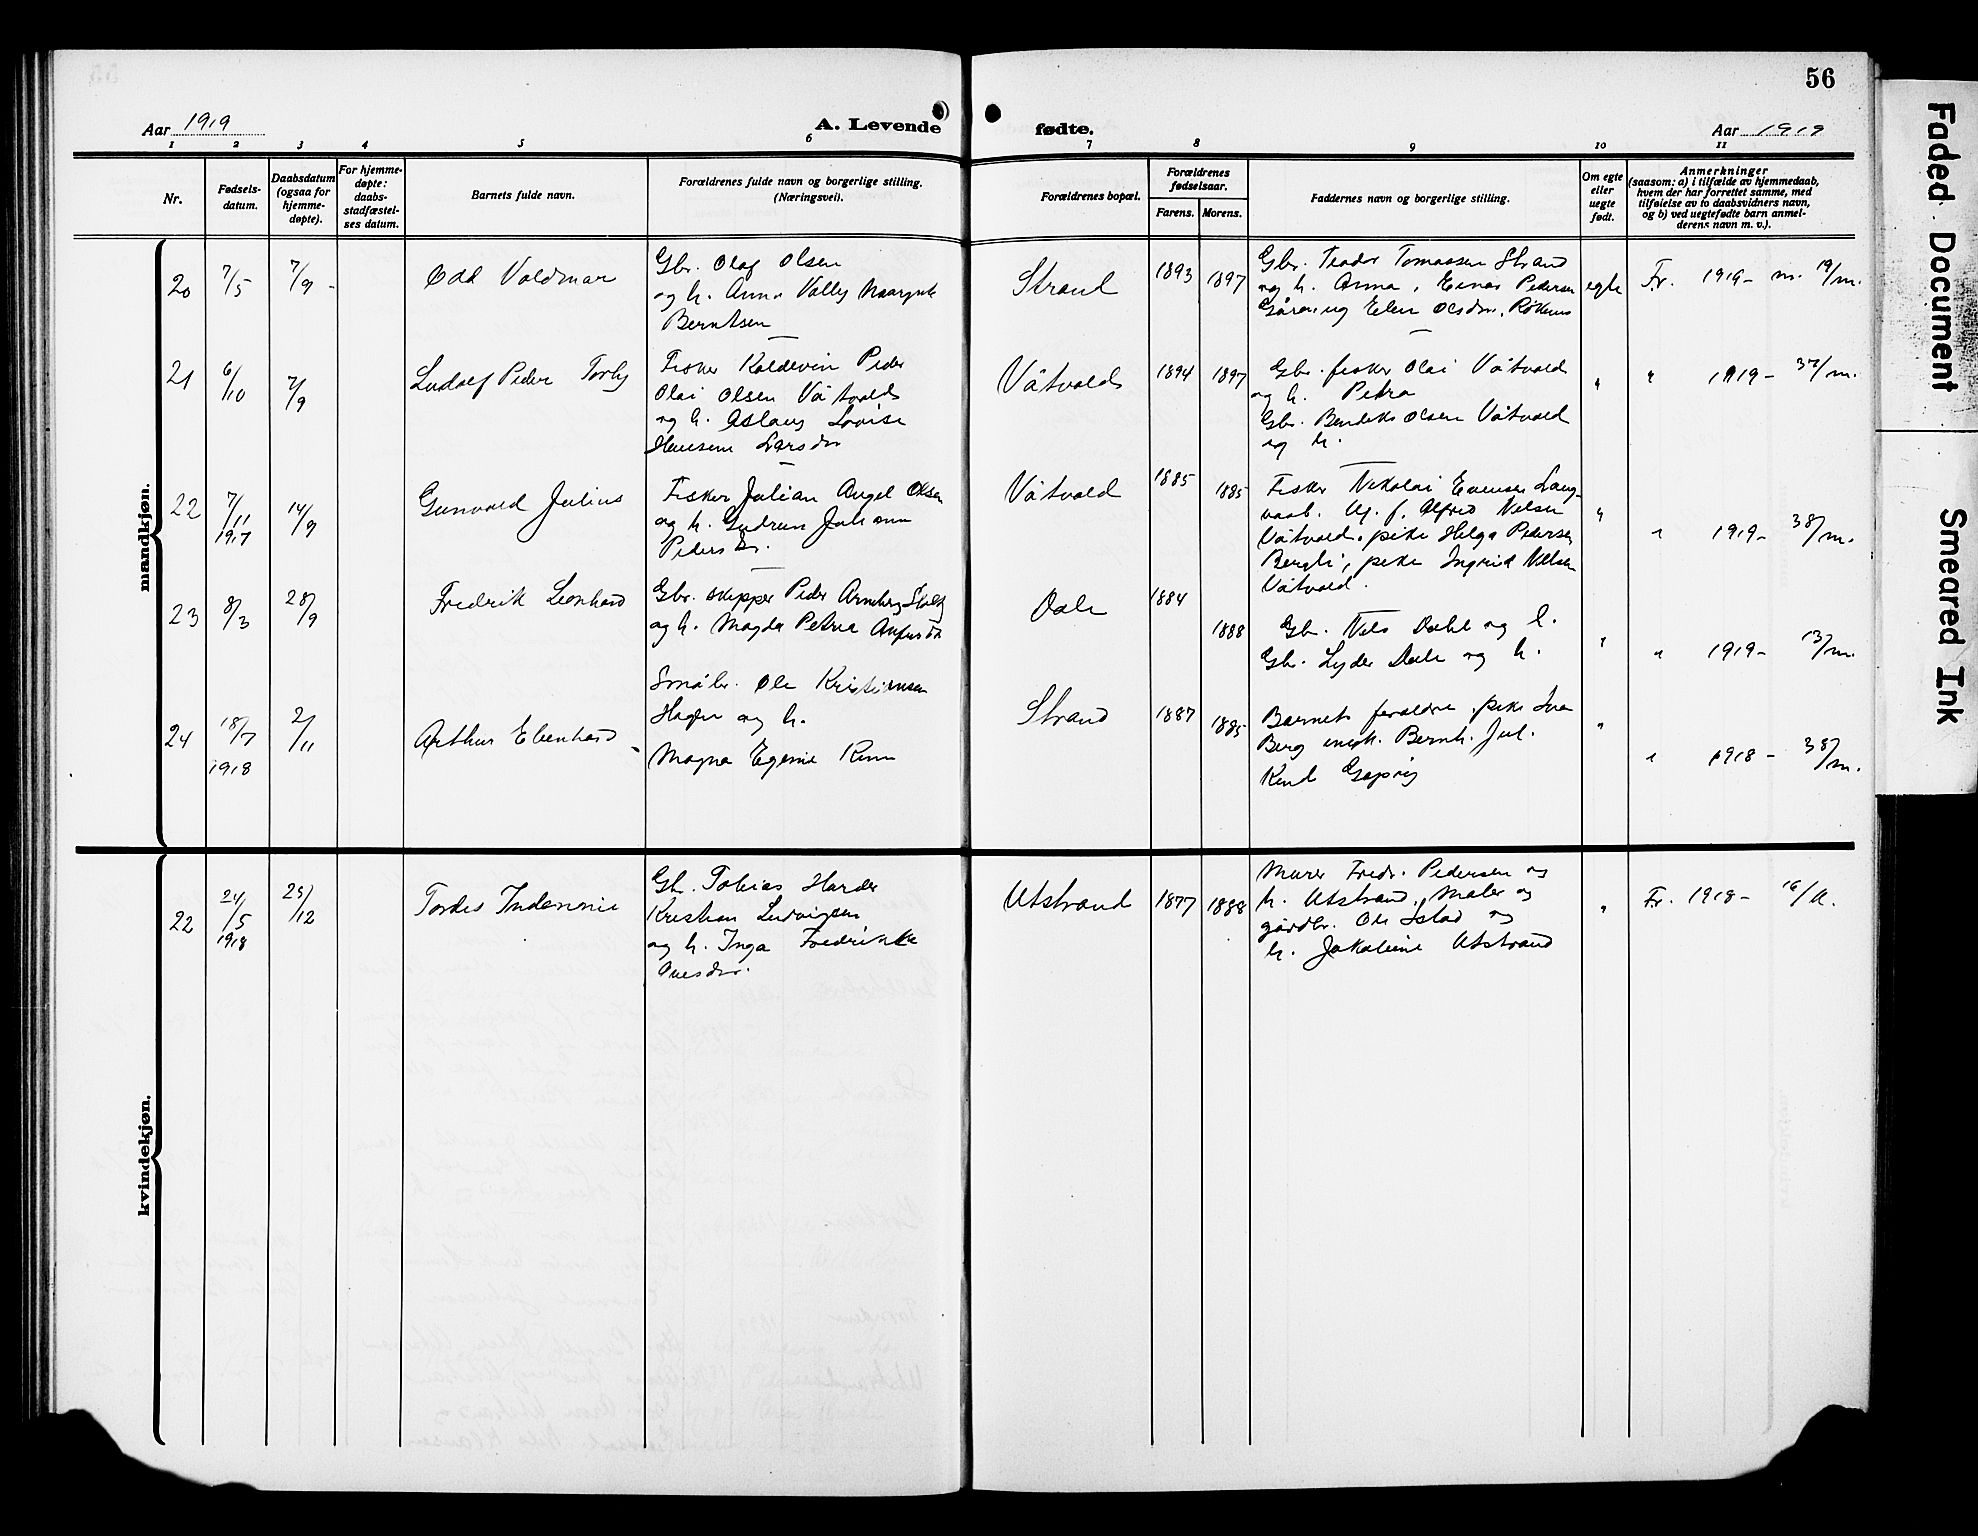 56
Aar 1919
A. Levende
fødte.
Aar 1919
1 2 3 4 5 6 7 8 9 10 11
Nr.
Fødsels-
datum.
Daabsdatum
(ogsaa for
hjemme-
døpte).
For hjemme-
døpte:
daabs-
stadfæstel-
ses datum.
Barnets fulde navn.
Forældrenes fulde navn og borgerlige stilling.
(Næringsvei).
Forældrenes bopæl.
Forældrenes
fødselsaar.
Farens.
Morens.
Faddernes navn og borgerlige stilling.
Om egte
eller
uegte
født.
Anmerkninger
(saasom: a) i tilfælde av hjemmedaab,
hvem der har forrettet samme, med
tilføielse av to daabsvidners navn,
og b) ved uegtefødte barn anmel-
derens navn m. v.).
mandkjøn.
20
7/5
7/9 -
Odd Valdmar
Gbr. Olaf Olsen
og h. Anna Valby
Berntsen
Strand
1893
1897
Gbr. Teodor Tomassen Strand
og h. Anna, Einar Pedersen
og Elen Olsdtr.
egte
Fr. 1919 - m. 19/m.
21
6/10
7/9
Ludolf Peder
Fisker Koldevin Peder
Olai Olsen Våtvold
og h. Aslaug Lovise
Hansene Larsdtr
Våtvold
1894
1897
Gbr. fisker Olai Våtvold
og h. Petra
Gbr. Bendik Olsen Våtvold
og h.
"
"
1919 - 37/m.
22
7/11
1917
14/9
Gunvald Julius
Fisker Julian Angel Olsen
og h. Gudrun
Pedersdtr.
Våtvold
1885
1885
Fisker Nikolai Evensen Lang-
vasb. f. Alfred Nilsen
Våtvold, pike Helga Pedersen
Bergli, pike Ingrid Nilsen
Våtvold.
"
"
1919 - 38/m.
23
8/3
28/9
Fredrik Leonhard
Gbr. skipper Peder Arnberg
og h. Magda Petrea
Dale
1884
1888
Gbr. Nils Dahl og h.
Gbr. Lyder Dale og h.
"
"
1919 - 13/m.
24
18/7
1918
2/11
Arthur Edenhard
Småbr. Ole Kristiansen
og h.
Magna Egenie
Strand
1887
1885
Barnets foraldre, pike
Berg ungk. Bernh. Jul.
"
"
1918 - 38/m.
kvindekjøn.
22
24/5
1918
25/12
Tordis
Gb. Tobias Harder
Kristian Ludvigsen
og h. Inga Fredrikke
Utstrand
1877
1888
Murer Fredr. Pedersen og
h. Utstrand, Maler og
gårdbr. Ole og
h. Jakobine Utstrand
"
Fr. 1918 - 16/A.
Faded Document
Smeared Ink